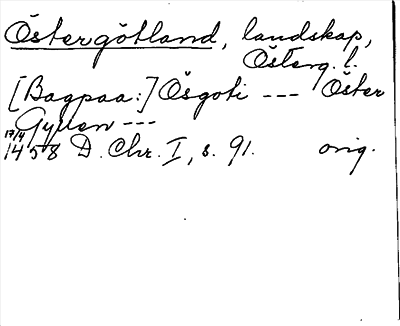 Östergötland, landskap,
Österg. l.
[Bagpaa:] Osgoti --- Öster
Gyllen ---
17/4
1458 D. Chr. I, s. 91. orig.